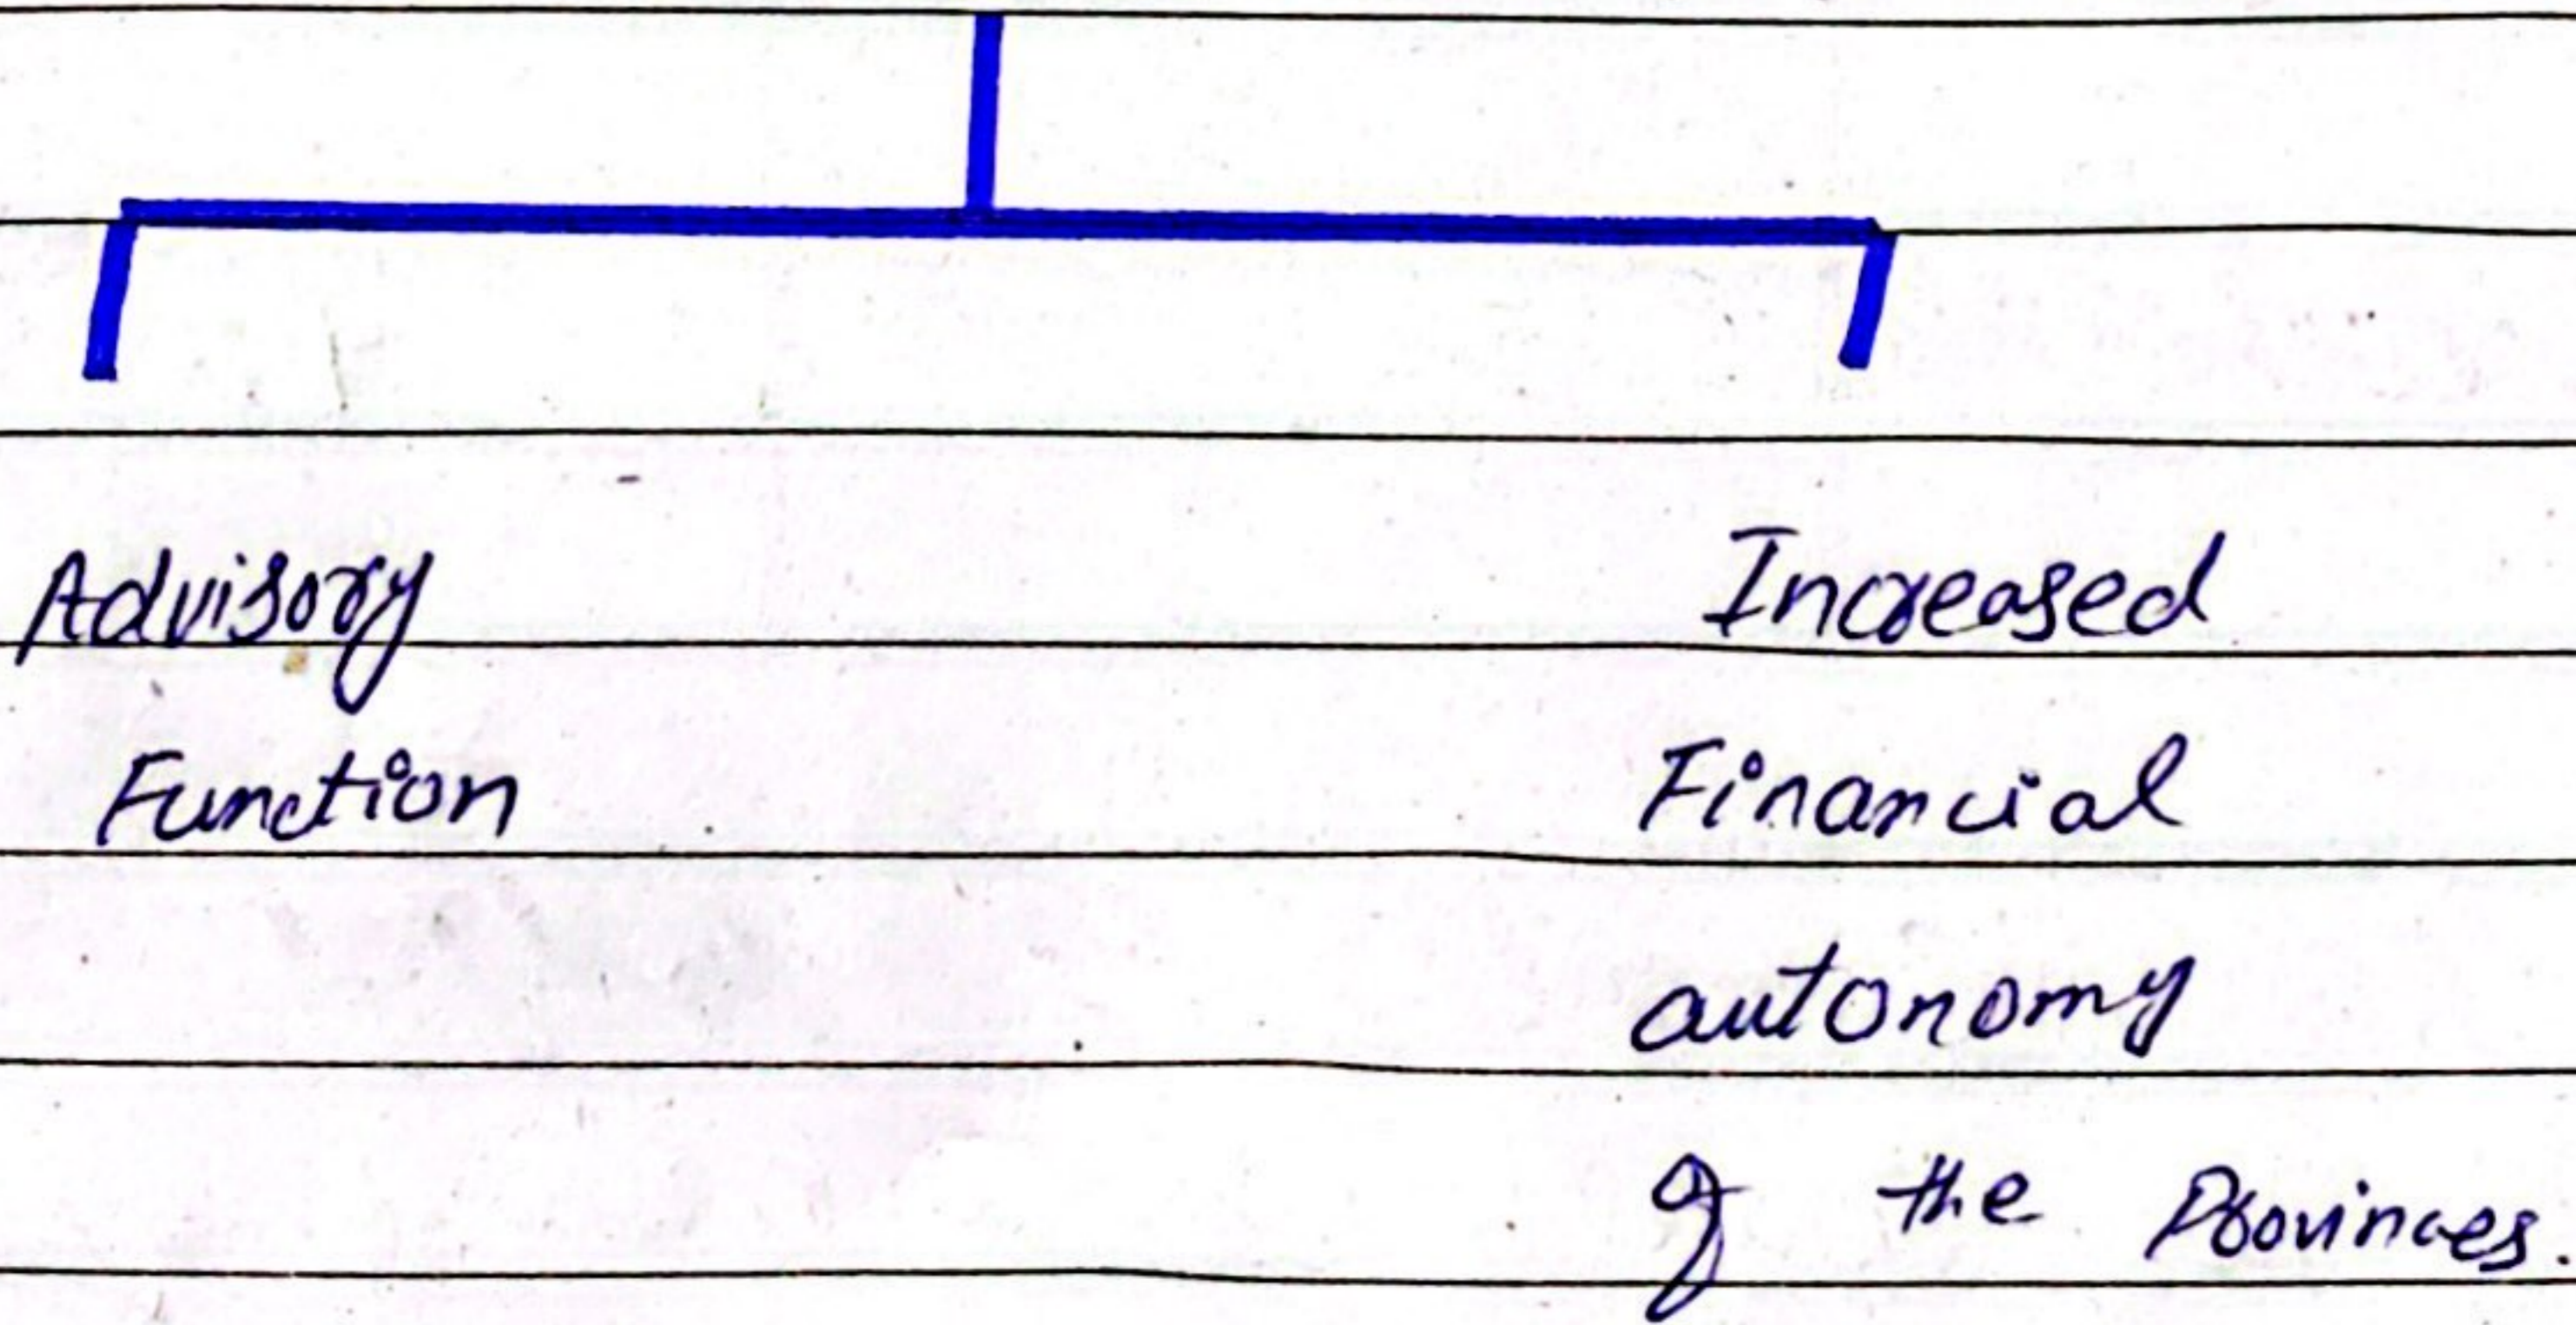 Advisory
Function
Increased
Financial
autonomy
of the Provinces.